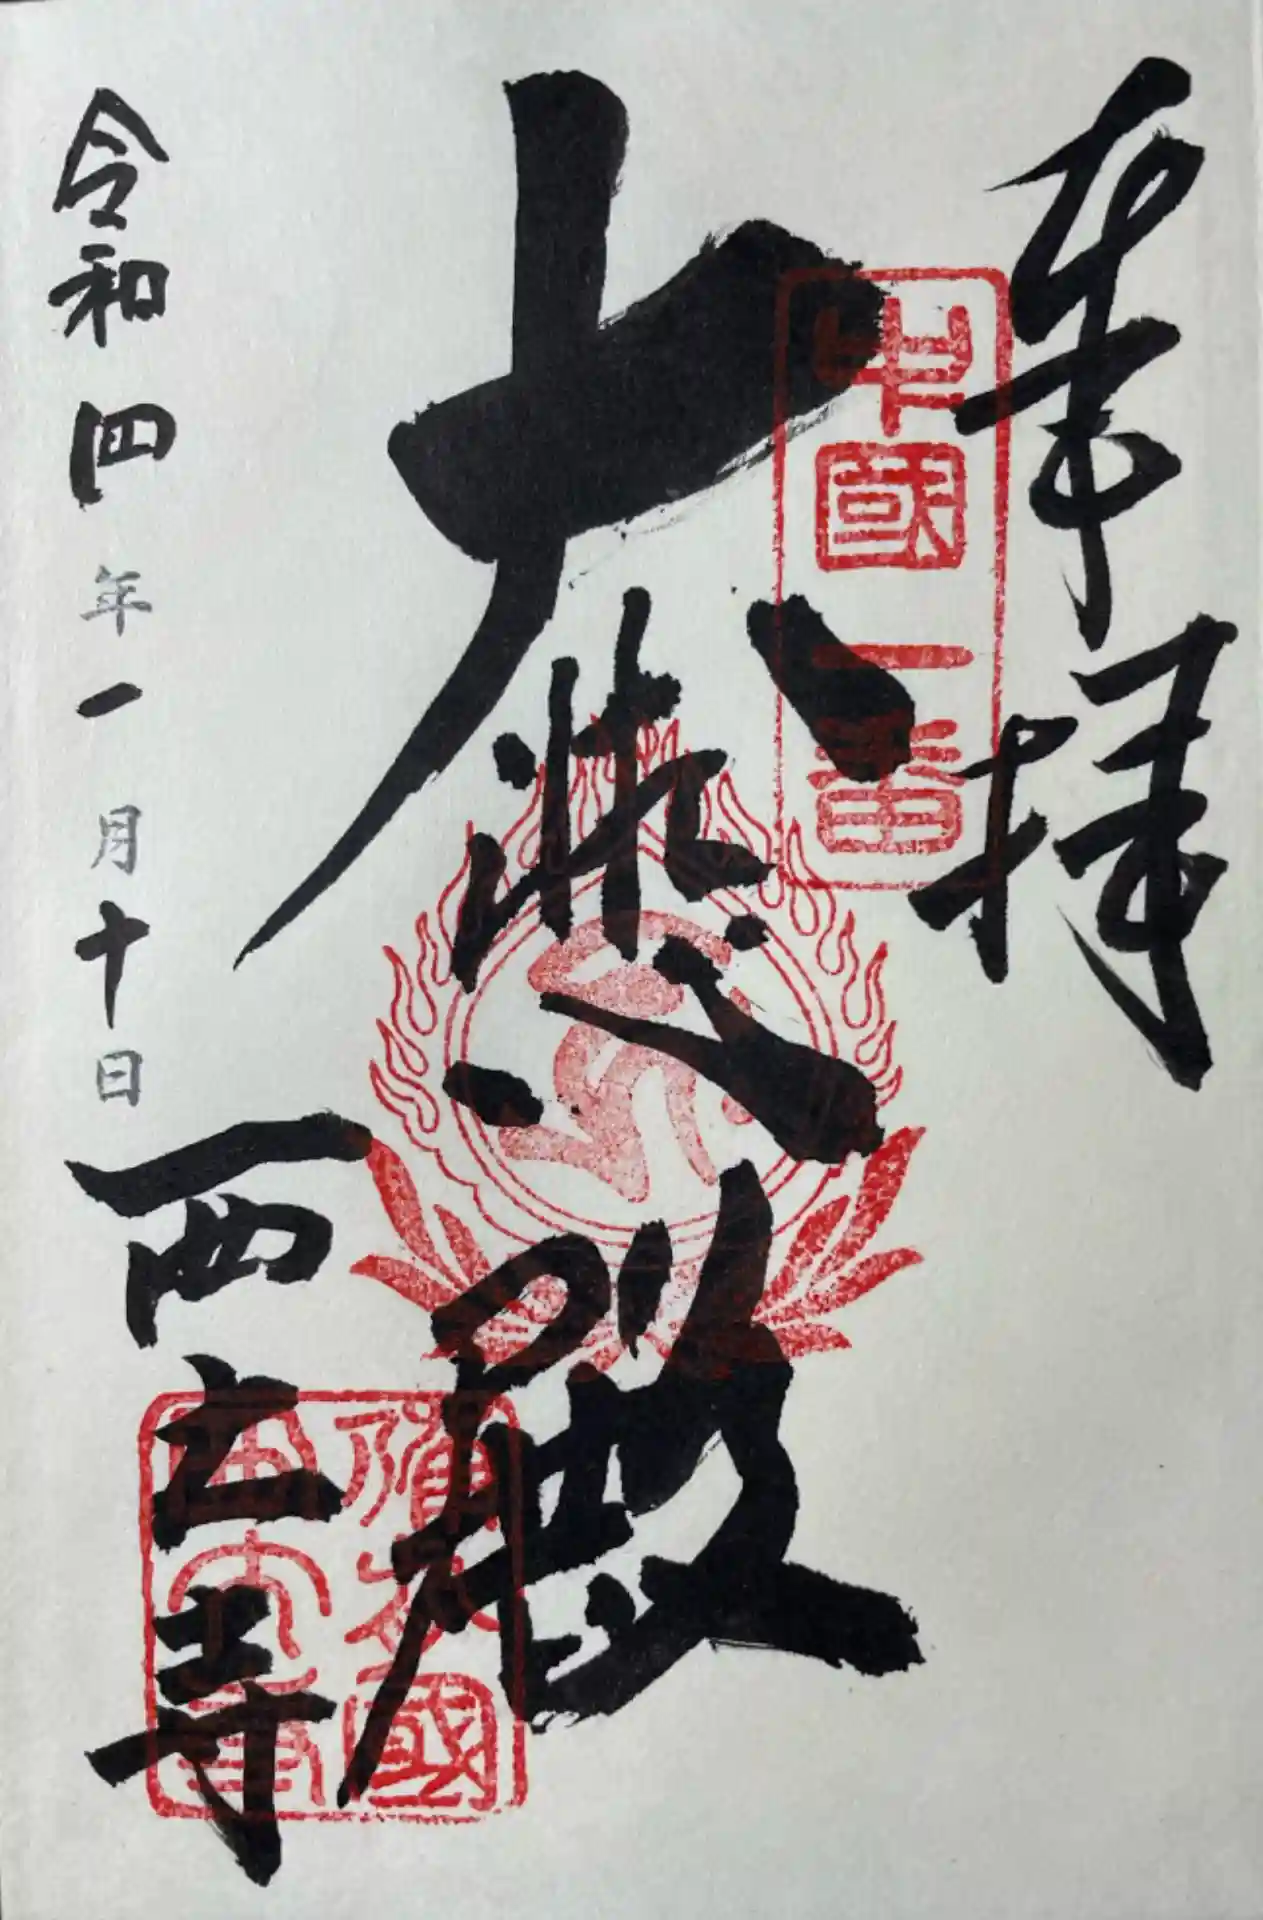 奉拝
中國一番
大悲殿
備前國
西大寺
令和四年一月十日
西大寺